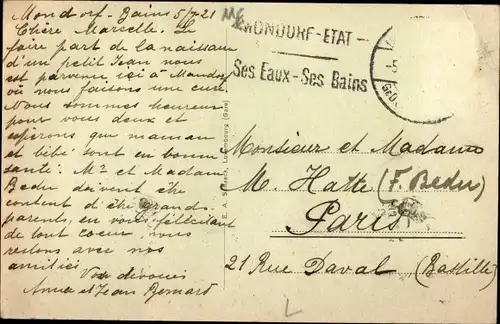 Mondorf-Bains 5/7 21
Chère Marcelle. Le
faire part de la naissance
d'un petit Jean nous
est parvenu ici à Mondorf
où nous faisons une cure
Nous sommes heureux
pour vous deux et
espérons que maman
et bébé sont en bonne
santé. Mr et Madame
Bedu doivent être
content d'être grands-
parents, en vous félicitant
de tout coeur nous
restons avec nos
amitiés
Vos dévoués
Anna et Jean Bernard
MONDORF-ETAT-
Ses Eaux-Ses Bains
Luxembourg (Gare)
Monsieur et Madame
M. Hatte (F. Bedu)
Paris
21 Rue Daval (Bastille)
L